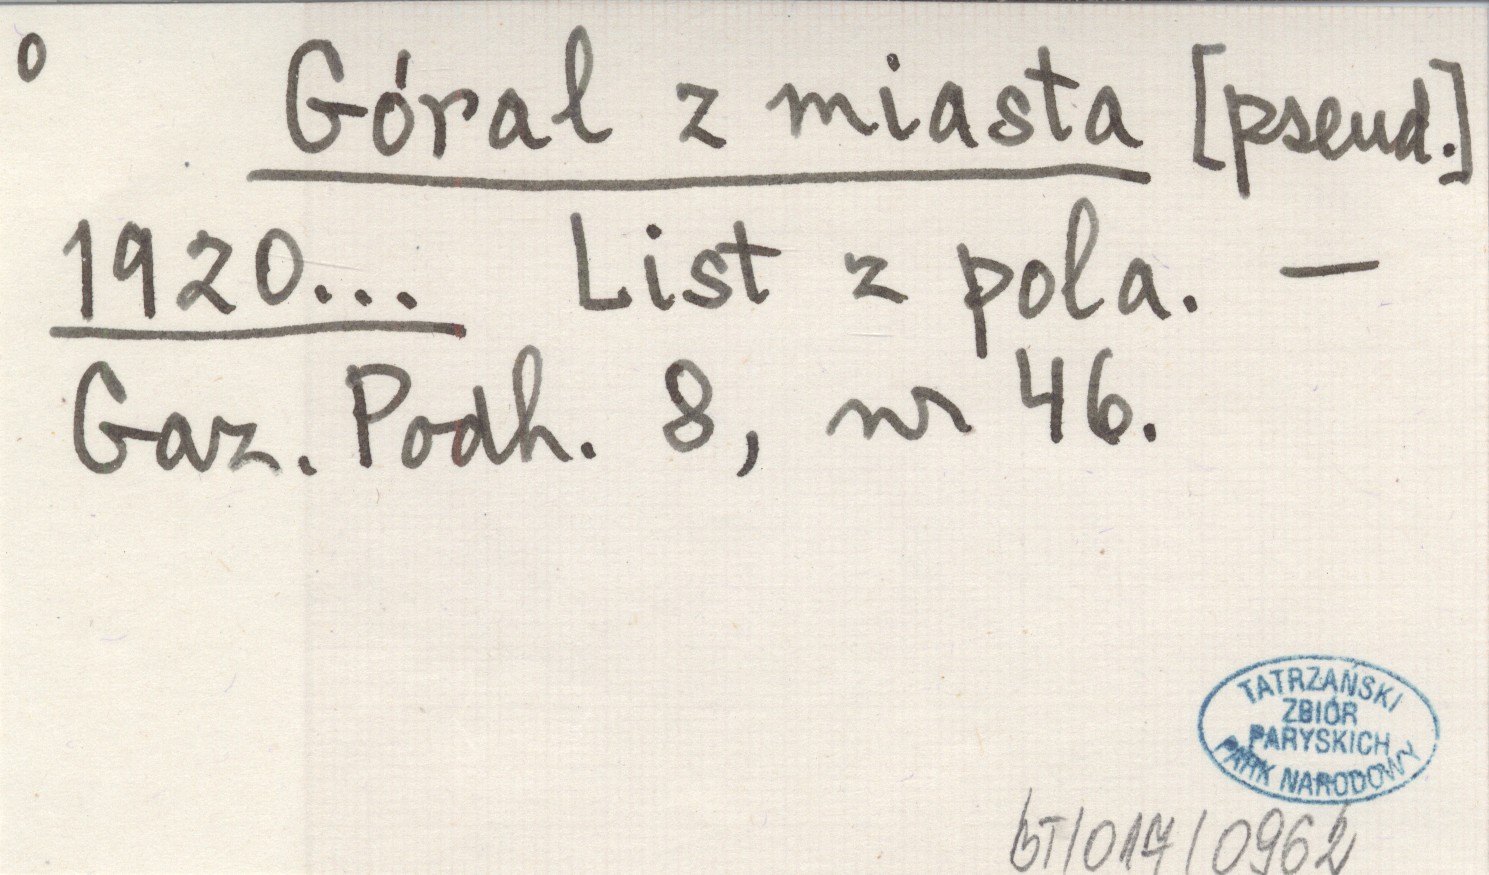 o Góral z miasta [pseud.]
1920... List z pola. —
Gaz. Podh. 8, nr 46.
TATRZAŃSKI
ZBIÓR
PARYSKICH
PARK NARODOWY
BT/017/0962